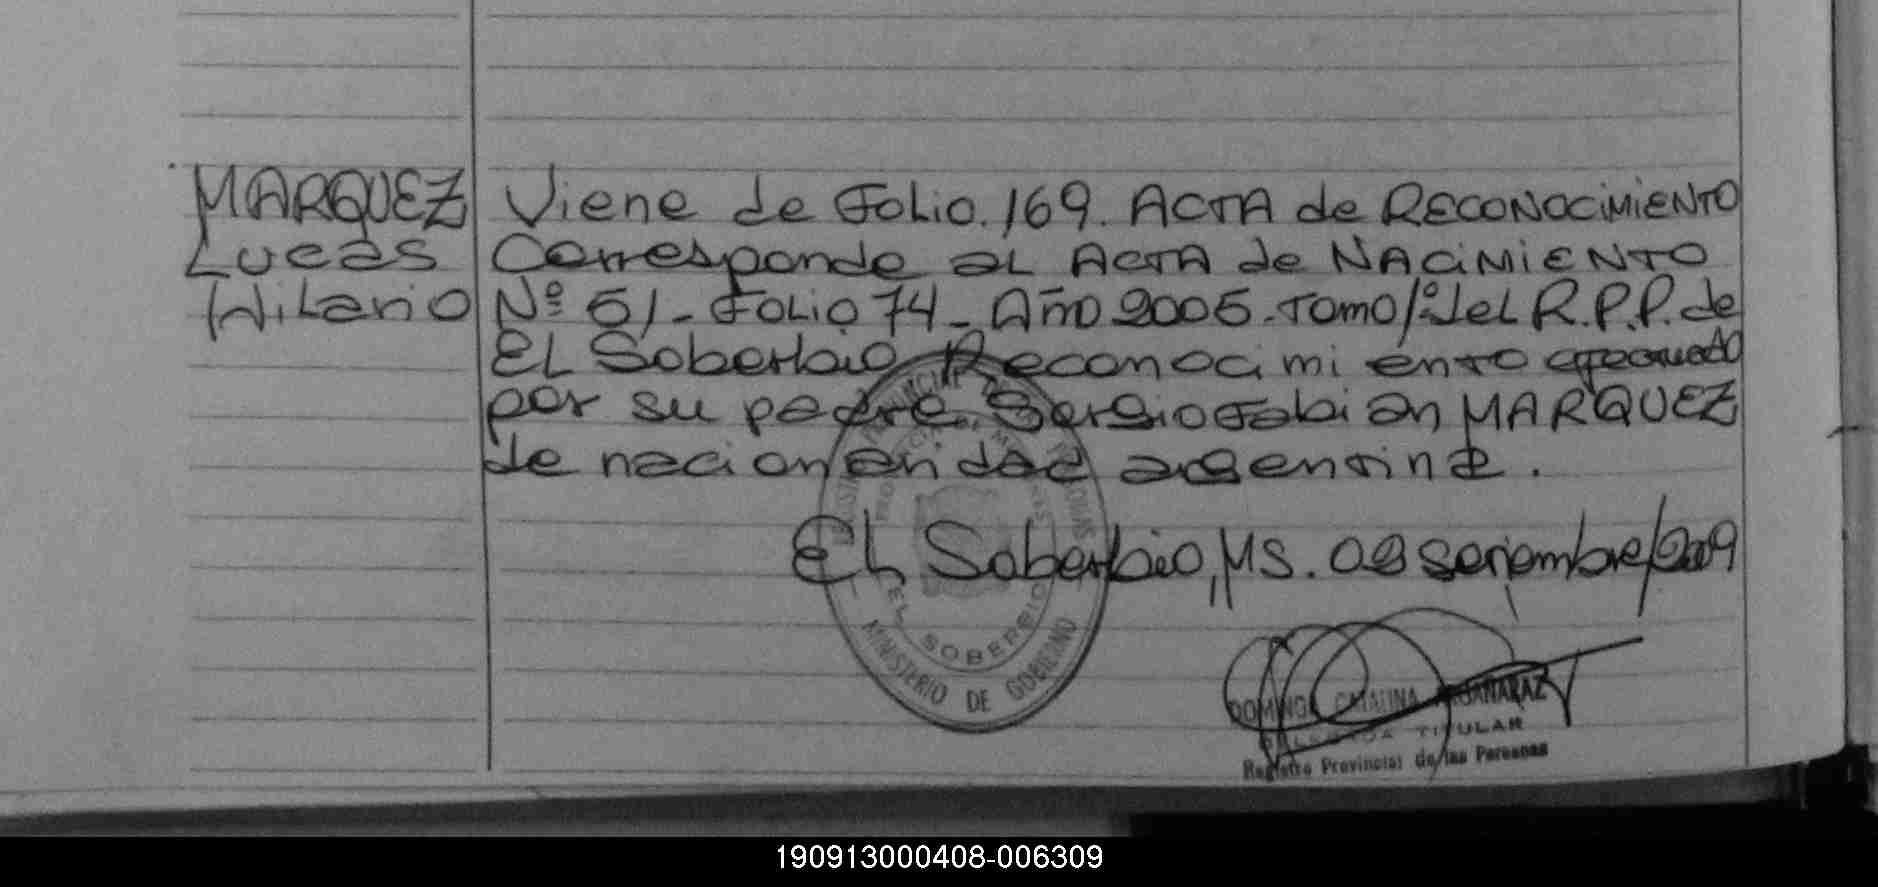 MARQUEZ
Lucas
Hilario
Viene de Folio. 169. ACTA de RECONOCIMIENTO
Corresponde al ACTA de NACIMIENTO
Nº 51 - Folio 74 - Año 2005 - Tomo 1º del R.P.P. de
El Soberbio Reconocimiento efectuado
por su padre Sergio Fabian MARQUEZ
de nacionalidad argentina.
El Soberbio, MS. 08 setiembre/2009
MINISTERIO DE GOBIERNO
EL SOBERBIO
CATALINA
TITULAR
Registro Provincial de las Personas
190913000408-006309